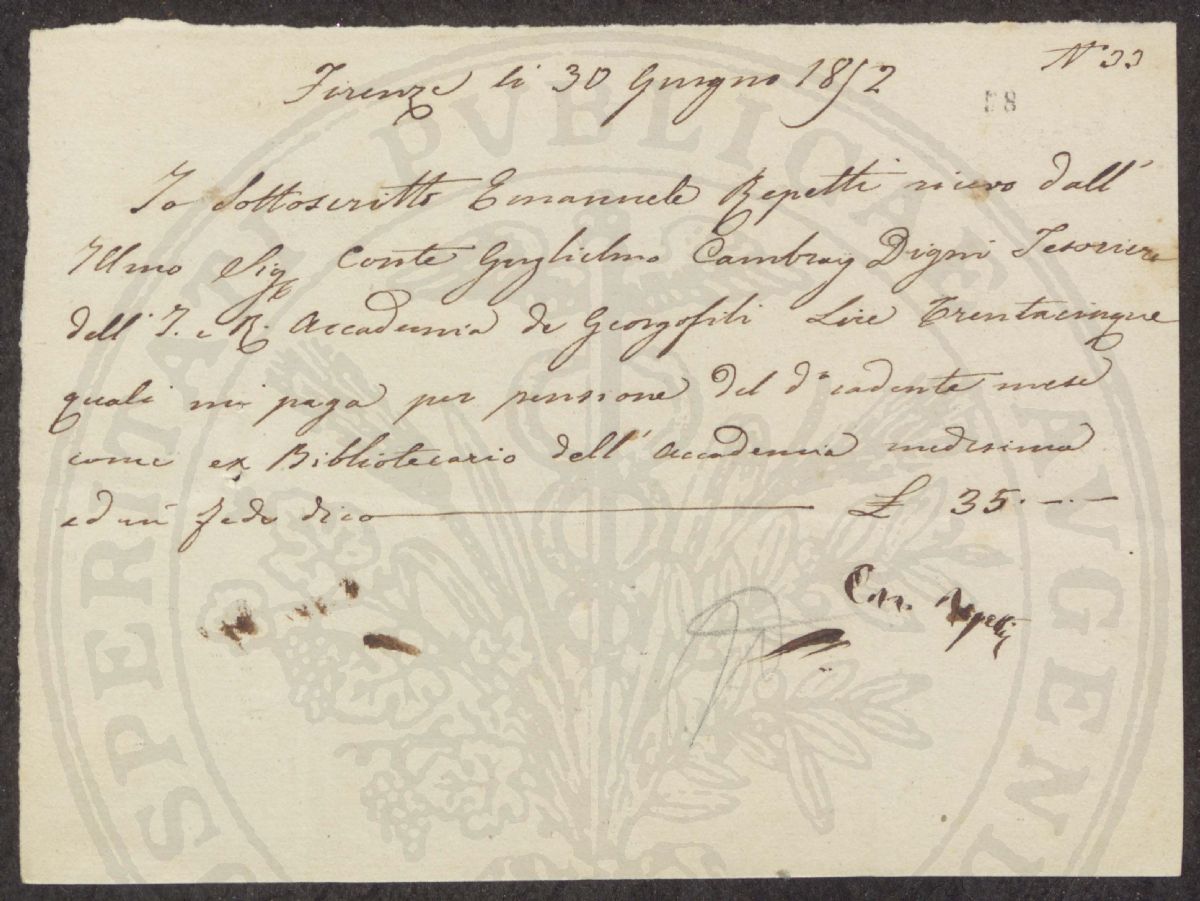 N° 33
58
Firenze li 30 Giugno 1852
Io Sottoscritto Emanuele Repetti ricevo dall'
Illmo Sig.re Conte Guglielmo Cambray Digni Tesoriere
dell' I. e R. Accademia de Georgofili Lire Trentacinque
quali mi paga per pensione del d° cadente mese
come ex Bibliotecario dell' Accademia medesima
ed in fede dico £ 35. — . —
Em. Repetti
PROSPERITATI PVBLICAE AVGENDAE